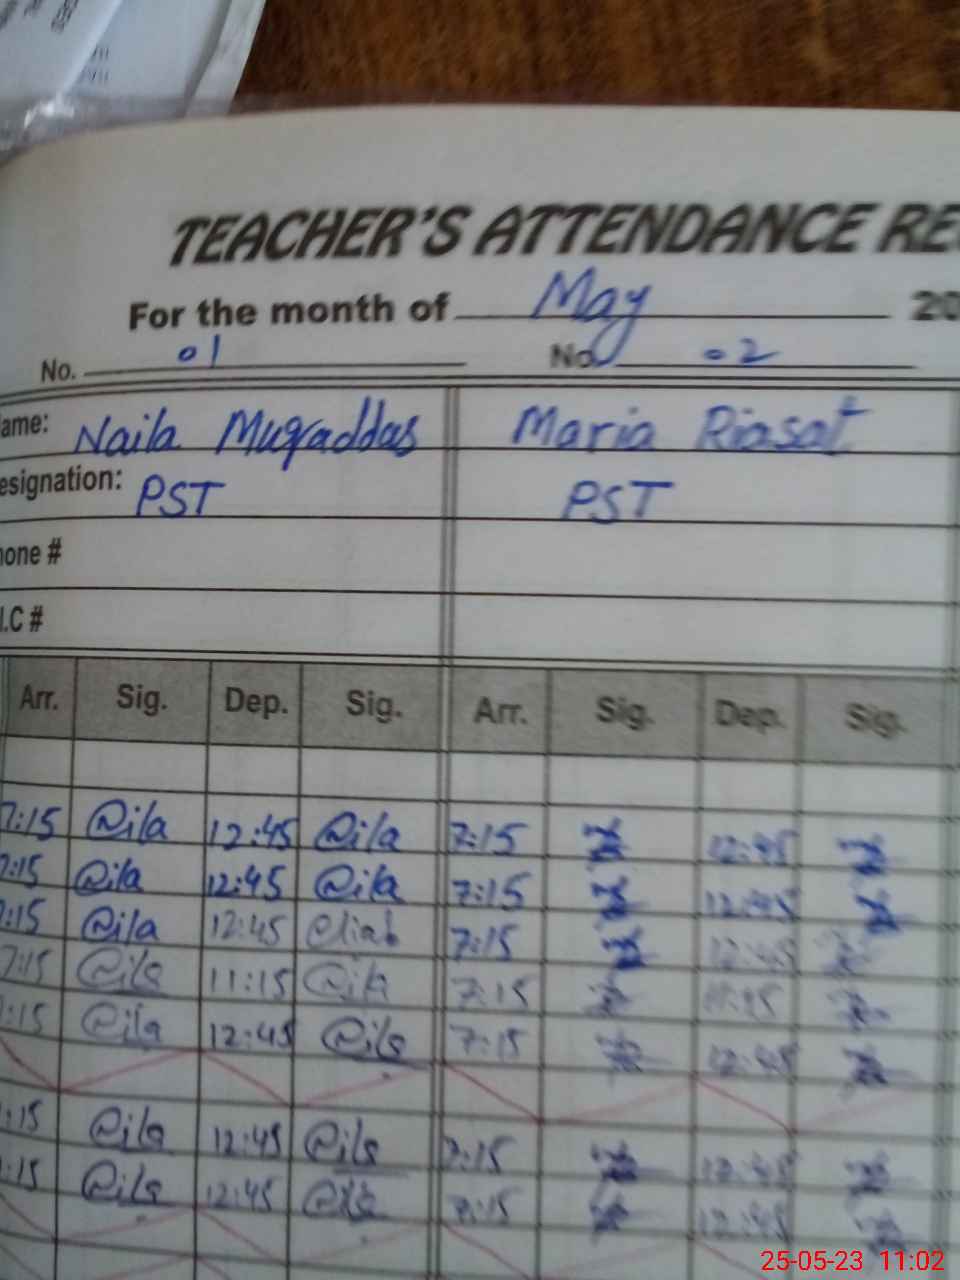 TEACHER'S ATTENDANCE RE
For the month of May 20
No. 01 No. 02
ame: Naila Muqaddas Maria Riasat
esignation: PST PST
hone #
I.C #
Arr. Sig. Dep. Sig. Arr. Sig. Dep. Sig.
7:15 @ila 12:45 @ila 7:15 12:45
7:15 @ila 12:45 @ila 7:15 12:45
:15 @ila 12:45 7:15 12:45
7:15 @ila 11:15 @ila 7:15
:15 @ila 12:45 @ila 7:15 12:45
:15 @ila 12:45 @ila 7:15 12:45
:15 @ila 12:45 7:15 12:45
25-05-23 11:02